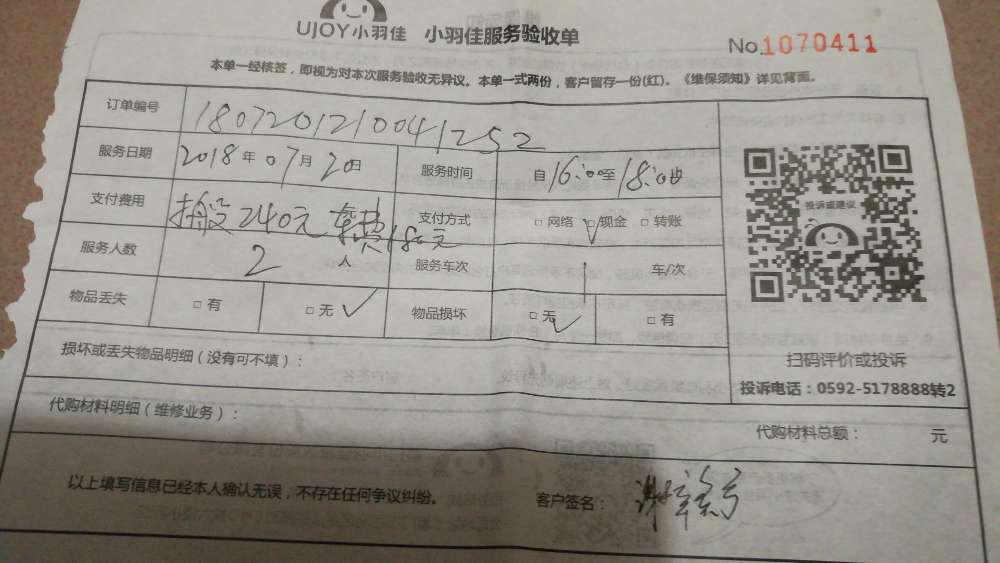 UJOY小羽佳 小羽佳服务验收单
No.1070411
本单一经核签，即视为对本次服务验收无异议。本单一式两份，客户留存一份(红)。《维保须知》详见背面。
订单编号 1807201210041252
服务日期 2018年07月20日 服务时间 自16:00至18:00
支付费用 搬设240元 车费180元 支付方式 □网络 □现金 □转账
服务人数 2人 服务车次 1 车/次
物品丢失 □有 □无 物品损坏 □无 □有
投诉或建议
扫码评价或投诉
投诉电话：0592-5178888转2
损坏或丢失物品明细（没有可不填）：
代购材料明细（维修业务）： 代购材料总额： 元
以上填写信息已经本人确认无误，不存在任何争议纠纷。 客户签名：